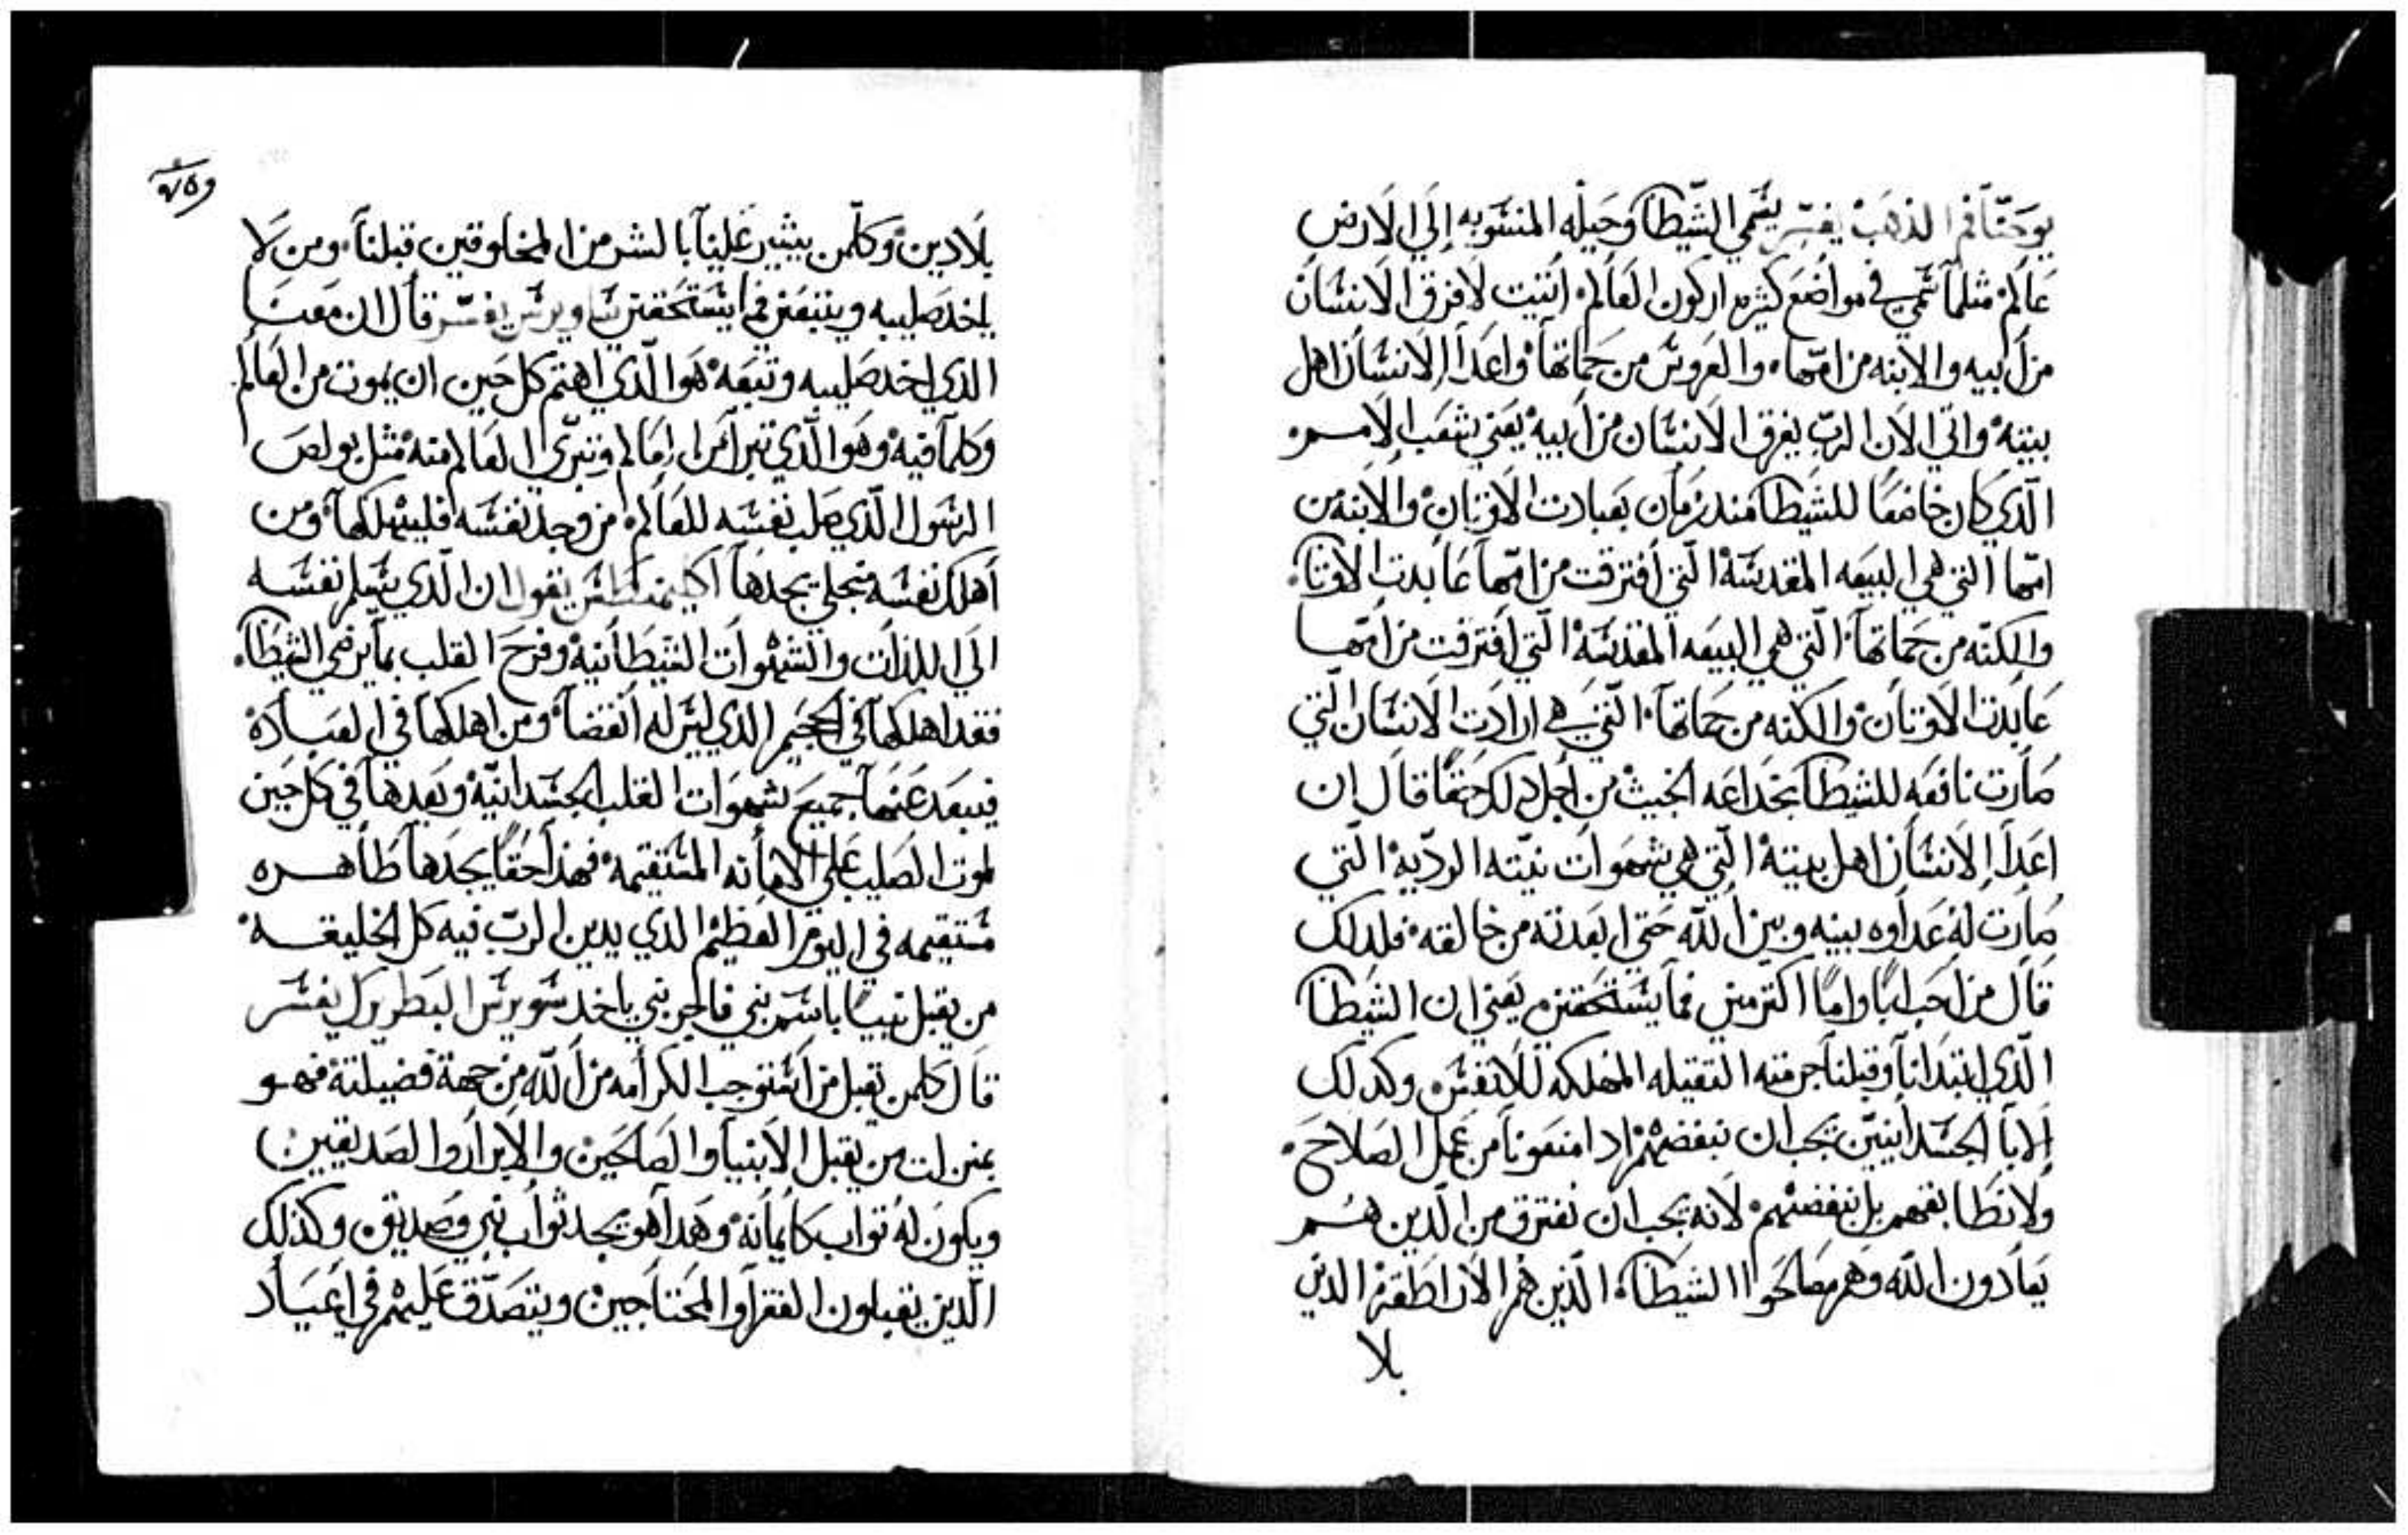 يوحنا فم الذهب يفسر يسمي الشيطان وحيله المنسوبه إلي الارض
عالم مثلما سمي في مواضع كثيره اركون العالم اتيت لافرق الانسان
من ابيه والابنه من امها والعروس من حماتها واعدا الانسان اهل
بيته واتي الان الرب يفرق الانسان من ابيه يعني شعب الامم
الذي كان خاضعا للشيطان مند زمان بعبادت الاوتان والابنه من
امها التي هي البيعه المقدسه التي افترقت من امها عابدت الاوتان
والكنه من حماتها التي هي البيعه المقدسه التي افترقت من امها
عابدت الاوتان والكنه من حماتها التي هي ارادت الانسان التي
صارت نافعه للشيطان بخداعه الخبيث من اجل دلك حقا قال ان
اعدا الانسان اهل بيته التي هي شهوات نيته الرديه التي
صارت له عداوه بينه وبين الله حتي ابعدته من خالقه فلدلك
قال من احب ابا واما اكتر مني فما يستحقني يعني ان الشيطان
الذي ابتدانا وقبلنا جرمته التقيله المهلكه للانفس وكدلك
الابا الجسدانيين يجب ان نبغضهم اد امنعونا من عمل الصلاح
ولا نطابقهم بل نبغضهم لانه يجب ان نفترق من الدين هم
يعادون الله وهم مصالحوا الشيطان الذين هم الاراطقه الذين
بلا
بلادين وكلمن يثير علينا بالشر من المخلوقين قبلنا ومن لا
ياخد صليبه ويتبعني فما يستحقني ساويرس يفسر قال ان معنا
الذي اخد صليبه وتبعه هو الذي اهتم كل حين ان يموت من العالم
وكلما فيه وهو الذي تبرا من العالم وتبري العالم منه مثل بولص
الرسول الذي صلب نفسه للعالم من وجد نفسه فليهلكها ومن
أهلك نفسه منجلي يجدها اكليمنطس يقول ان الذي يسلم نفسه
الي اللذات والشهوات الشيطانيه وفرح القلب بما يرضي الشيطان
فقد اهلكها في الجحيم الذي ليس له انقضا ومن اهلكها في العباده
فيبعد عنها جميع شهوات القلب الجسدانيه ويعدها في كل حين
لموت الصليب علي الامانه المستقيمه فهذا حقا يجدها طاهره
مستقيمه في اليوم العظيم الذي يدين الرب فيه كل الخليقه
من يقبل نبيا باسم نبي فاجر نبي ياخد سويرس البطريرك يفسر
قال كلمن يقبل من استوجب الكرامه من الله من جهة فضيلته فهو
بمنزلت من يقبل الانبيا والصالحين والابرار والصديقيين
ويكون له تواب كايمانه وهدا هو يجد ثواب نبي وصديق وكذلك
الذين يقبلون الفقرا والمحتاجين ويتصدق عليهم في اعياد